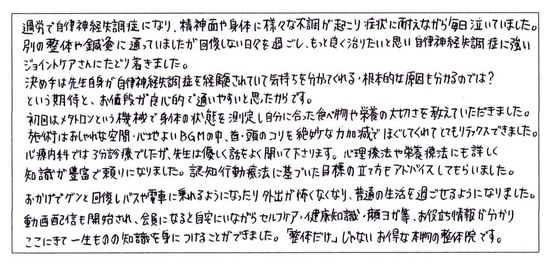 過労で自律神経失調症になり、精神面や身体に様々な不調が起こり症状に耐えながら毎日泣いていました。
別の整体や鍼灸に通っていましたが回復しない日々を過ごし、もっと良く治りたいと思い自律神経失調症に強い
ジョイントケアさんにたどり着きました。
決め手は先生自身が自律神経失調症を経験されていて気持ちを分かってくれる・根本的な原因も分かるのでは?
という期待と、お値段が良心的で通いやすいと思ったからです。
初回はメタトロンという機械で身体の状態を測定し自分に合った食べ物や栄養の大切さを教えていただきました。
施術はおしゃれな空間・心地よいBGMの中、首・頭のコリを絶妙な力加減でほぐしてくれてとてもリラックスできました。
心療内科では3分診療でしたが、先生は優しく話をよく聞いて下さります。心理療法や栄養療法にも詳しく
知識が豊富で頼りになりました。認知行動療法に基づいた目標の立て方もアドバイスしてもらいました。
おかげでグンと回復しバスや電車に乗れるようになったり外出が怖くなくなり、普通の生活を過ごせるようになりました。
動画配信も開始され、会員になると自宅にいながらセルフケア・健康知識・顔ヨガ等、お役立ち情報が分かり
ここにきて一生ものの知識を身につけることができました。「整体だけ」じゃないお得な本物の整体院です。